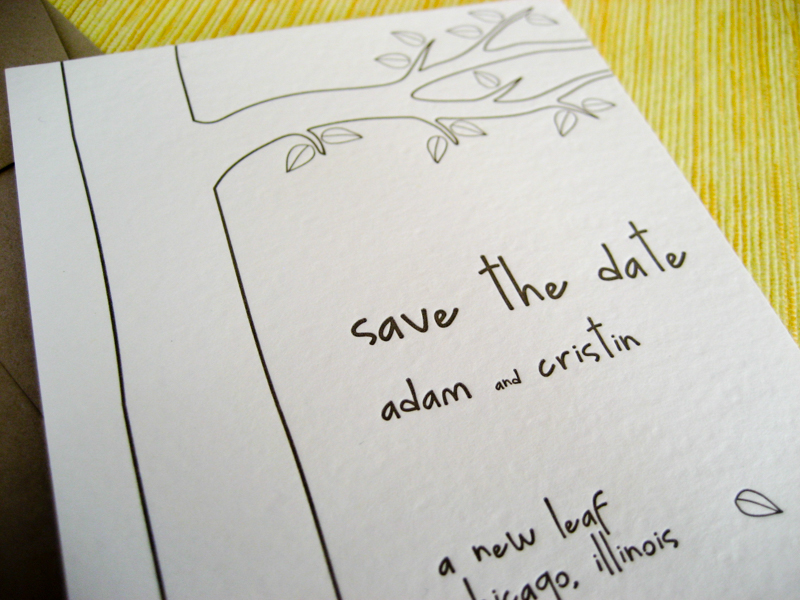 save the date
adam and cristin
a new leaf
chicago, illinois